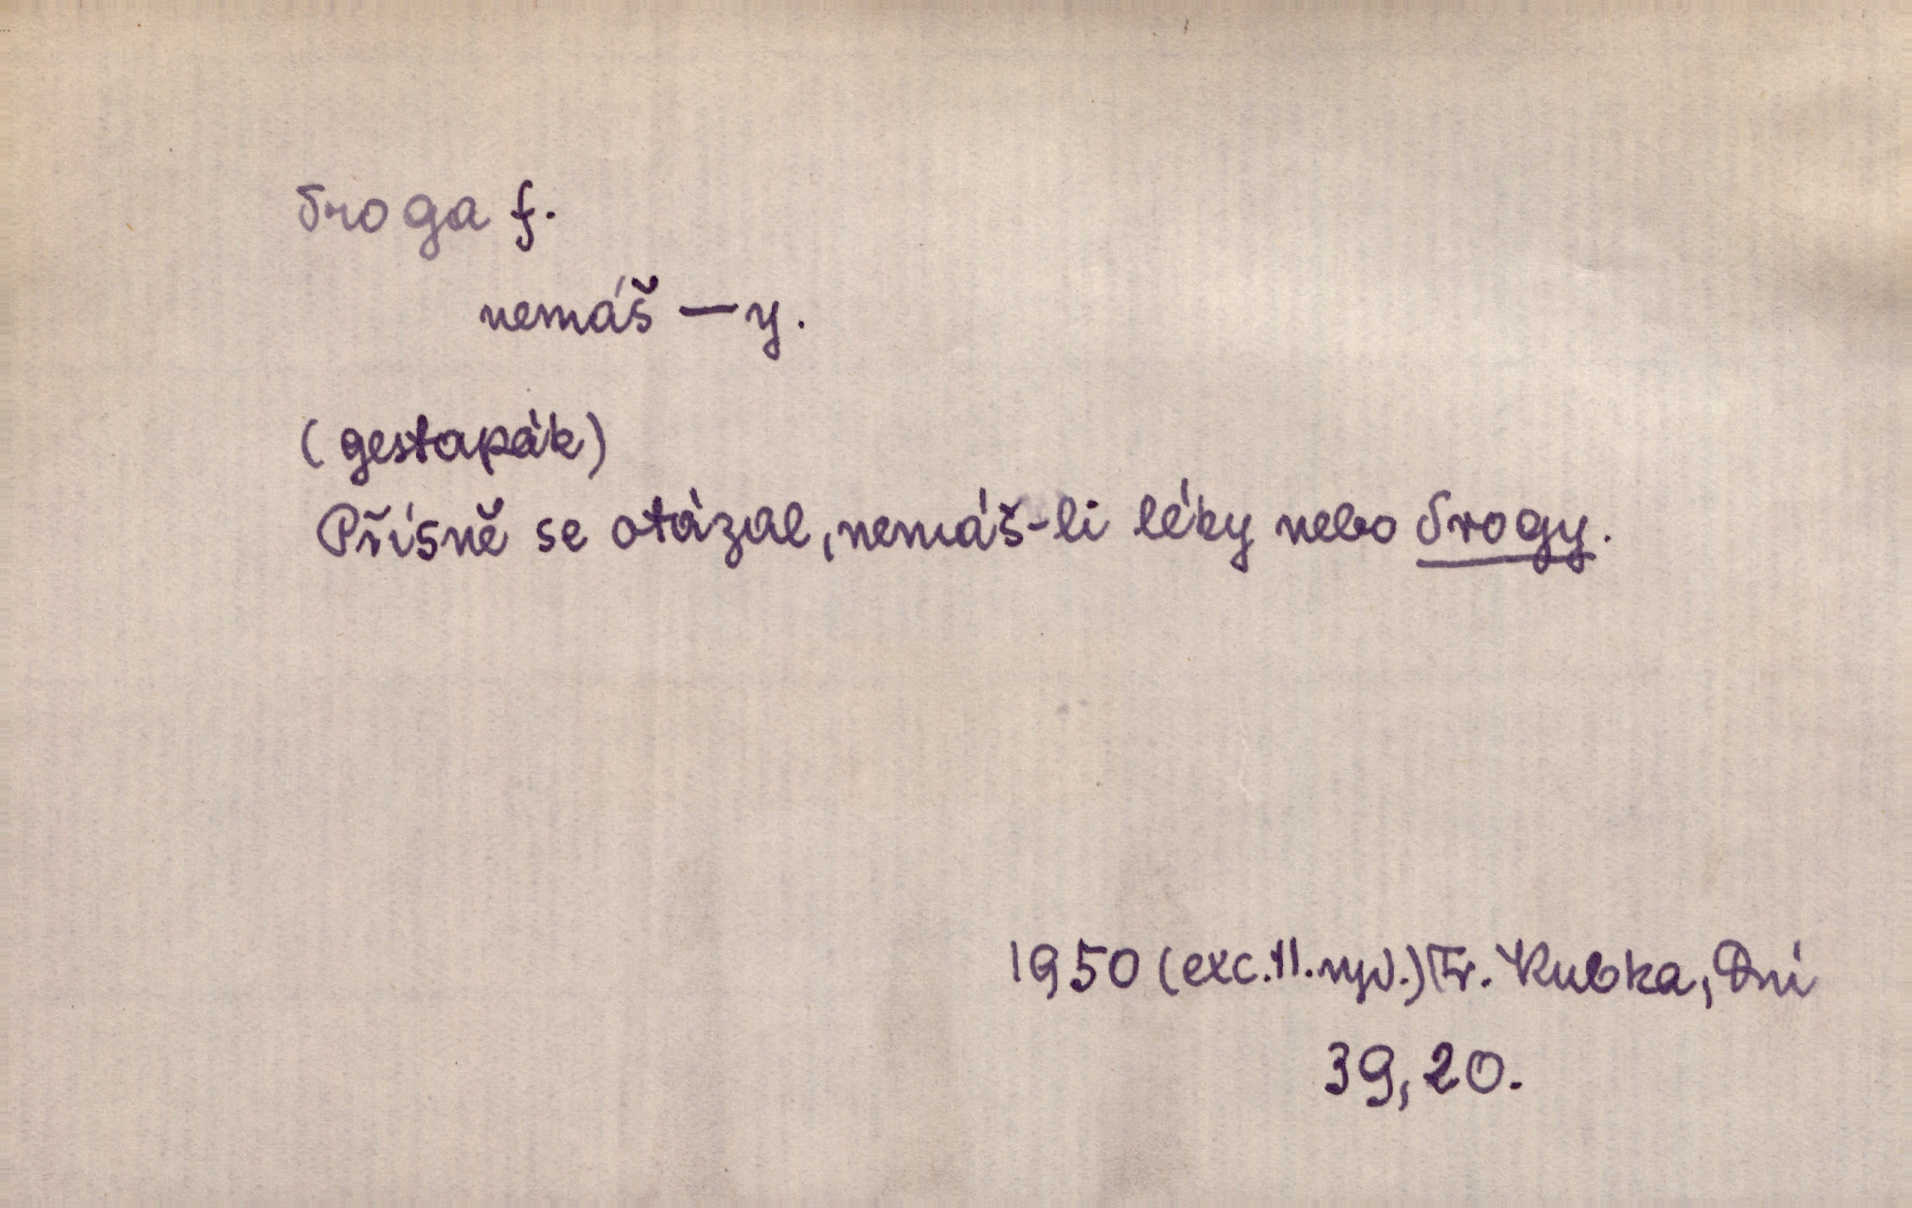 droga f.
nemáš — y.
(gestapák)
Přísně se otázal, nemáš-li léky nebo drogy.
1950 (exc. 11. vyd.) Fr. Kubka, Dni
39, 20.